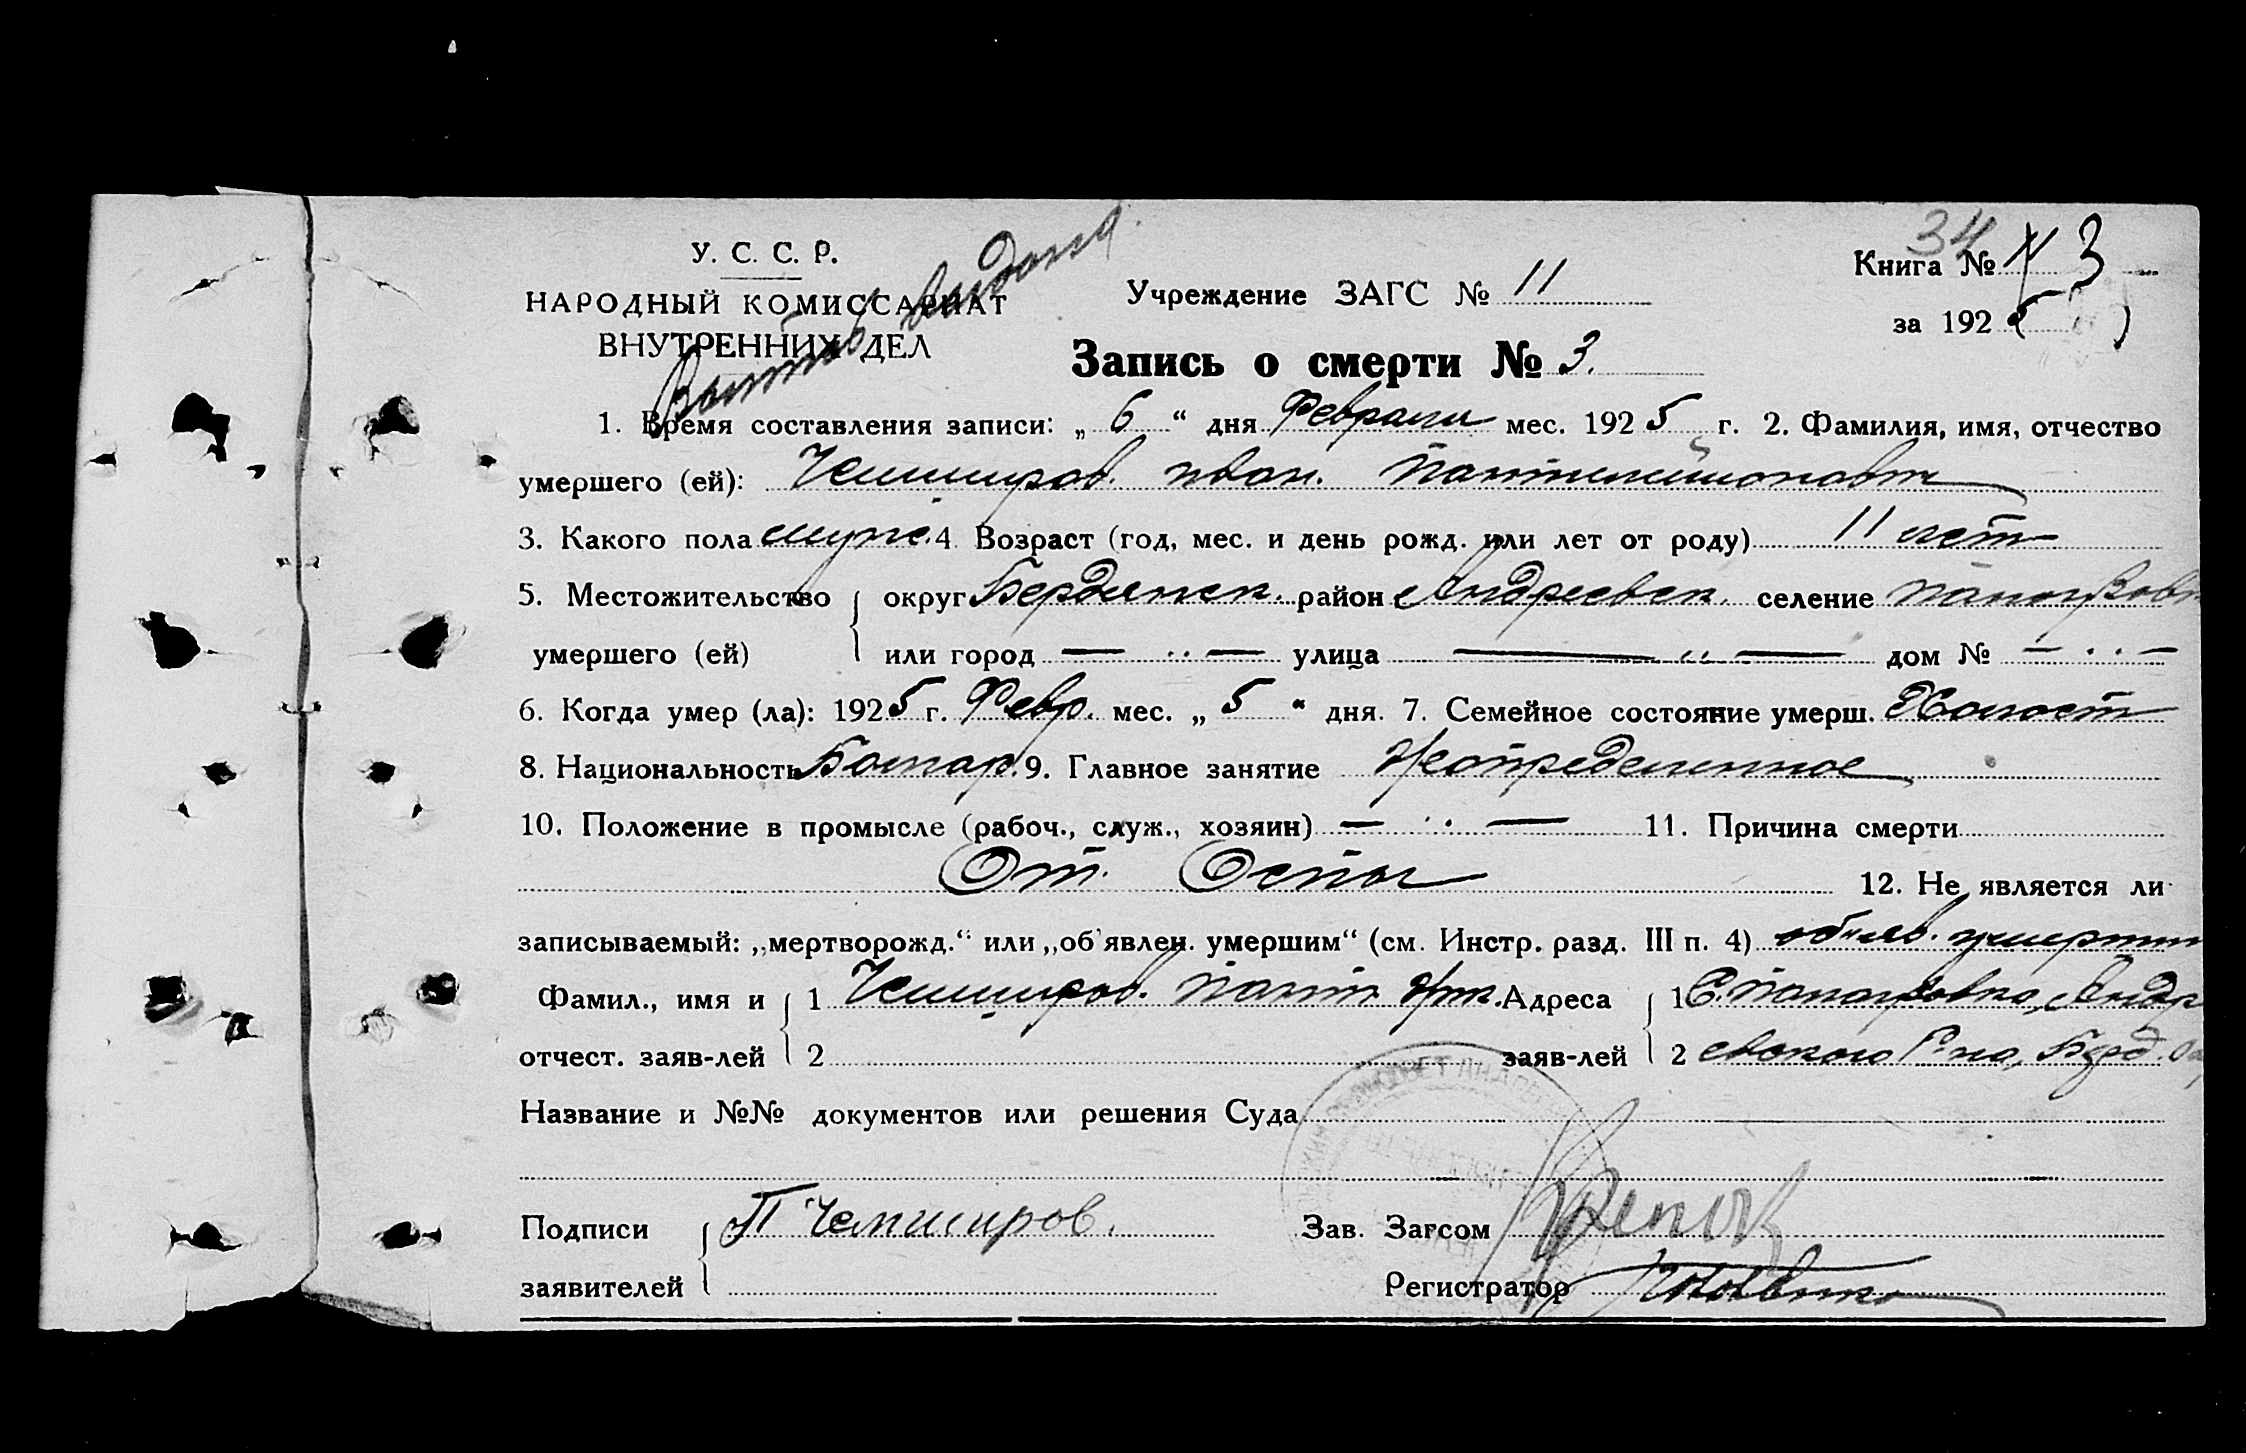 34
У. С. С. Р.
НАРОДНЫЙ КОМИССАРИАТ
ВНУТРЕННИХ ДЕЛ
Выпись выдана.
Учреждение ЗАГС № 11
Книга № 3
за 1925
Запись о смерти № 3.
1. Время составления записи: „ 6 “ дня Февраля мес. 1925 г. 2. Фамилия, имя, отчество
умершего (ей): Чемширов. Иван.
3. Какого пола муж. 4 Возраст (год, мес. и день рожд. или лет от роду) 11 лет
5. Местожительство округ Бердянск. район Андреевск. селение
умершего (ей) или город — .. — улица — .. — дом № — .. —
6. Когда умер (ла): 1925 г. Февр. мес. „ 5 “ дня. 7. Семейное состояние умерш. Холост
8. Национальность Болгар. 9. Главное занятие Неопределенное
10. Положение в промысле (рабоч., служ., хозяин) — .. — 11. Причина смерти
От. Оспы
12. Не является ли
записываемый: „мертворожд.“ или „об'явлен. умершим“ (см. Инстр. разд. III п. 4) объяв. умершим
Фамил., имя и 1 Чемширов. Пант. Адреса 1
отчест. заяв-лей 2 заяв-лей 2 евского Р-на, Берд.
Название и №№ документов или решения Суда
Подписи П Чемширов. Зав. Загсом
заявителей Регистратор